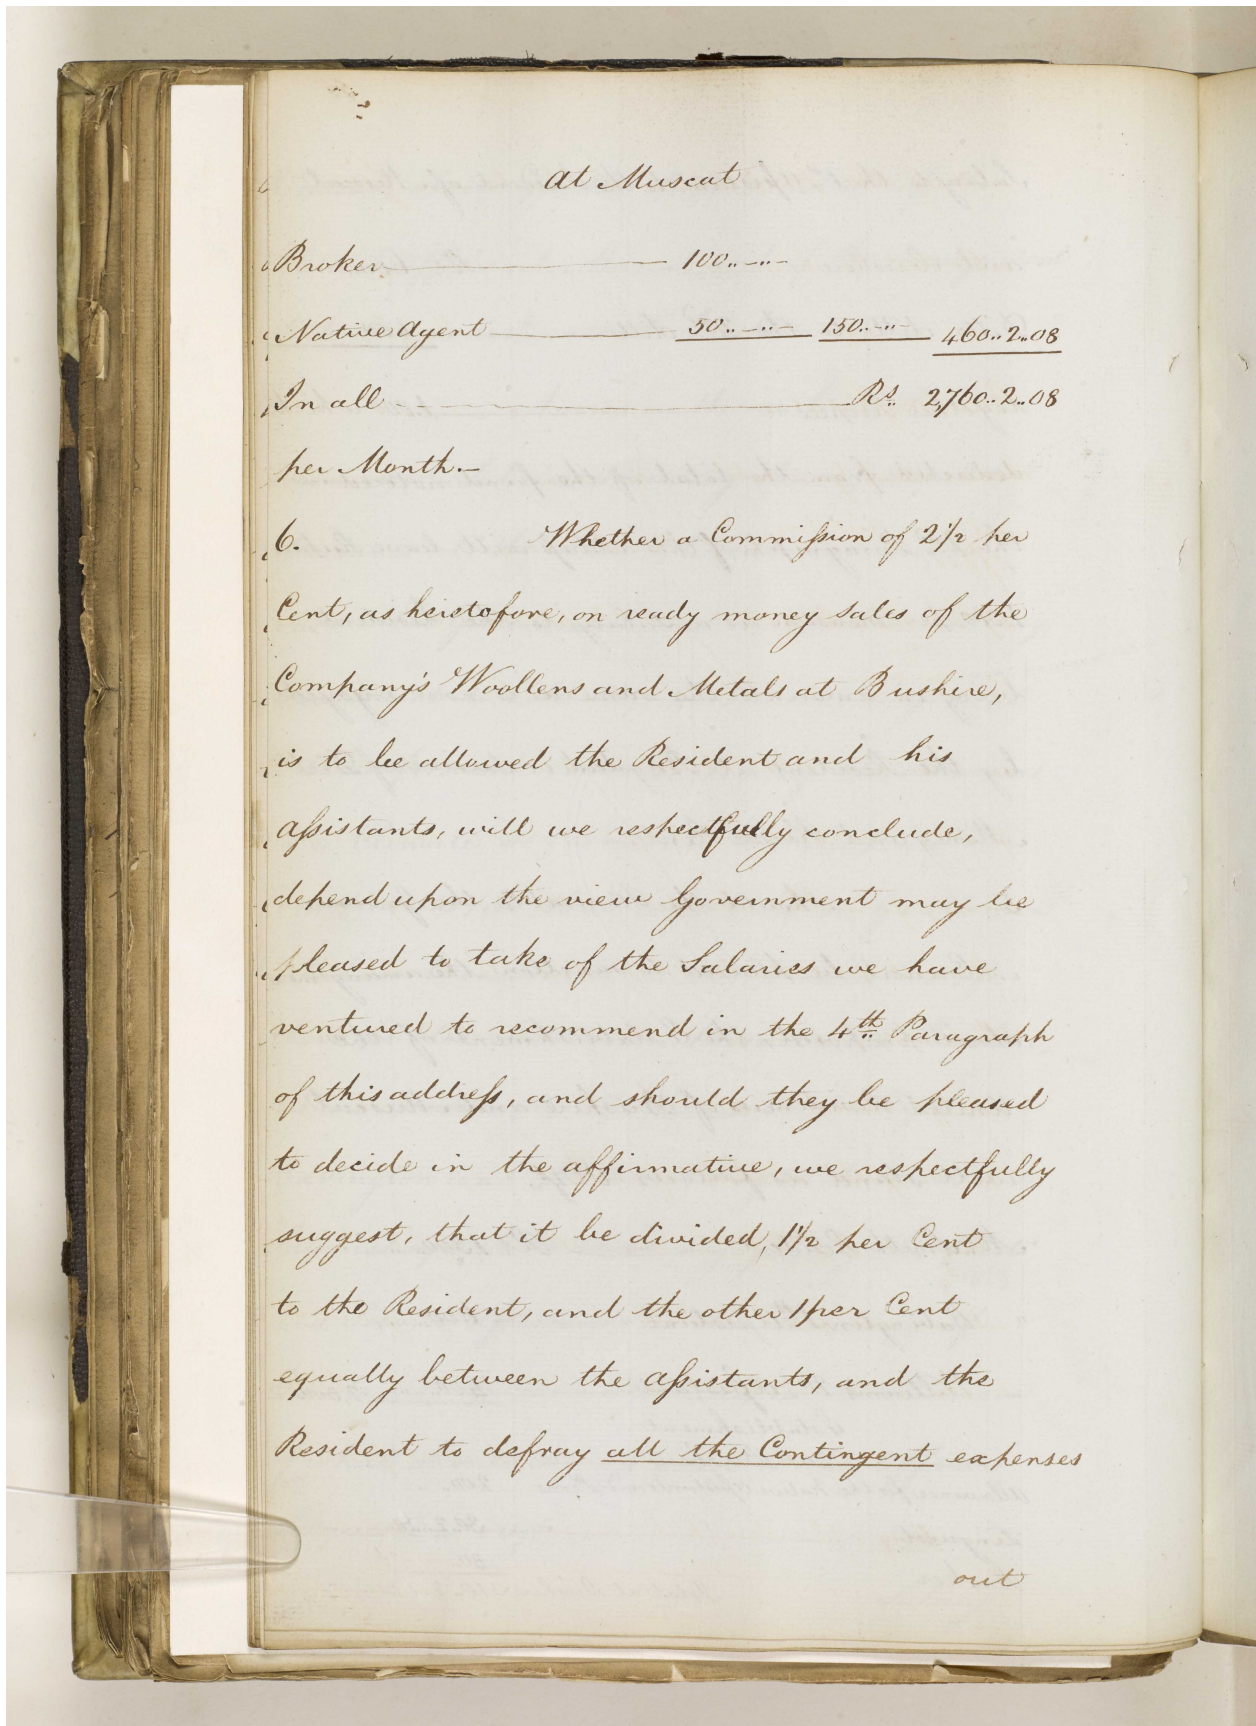 At Muscat
Broker ——— 100..–..–
Native Agent ——— 50..–..– 150..–..– 460..2..08
In all ——— Rs. 2,760..2..08
per Month.–
6. Whether a Commission of 2½ per
Cent, as heretofore, on ready money sales of the
Company's Woollens and Metals at Bushire,
is to be allowed the Resident and his
Assistants, will we respectfully conclude,
depend upon the view Government may be
pleased to take of the Salaries we have
ventured to recommend in the 4th Paragraph
of this address, and should they be pleased
to decide in the affirmative, we respectfully
suggest, that it be divided, 1½ per Cent
to the Resident, and the other 1 per Cent
equally between the Assistants, and the
Resident to defray all the Contingent expenses
out